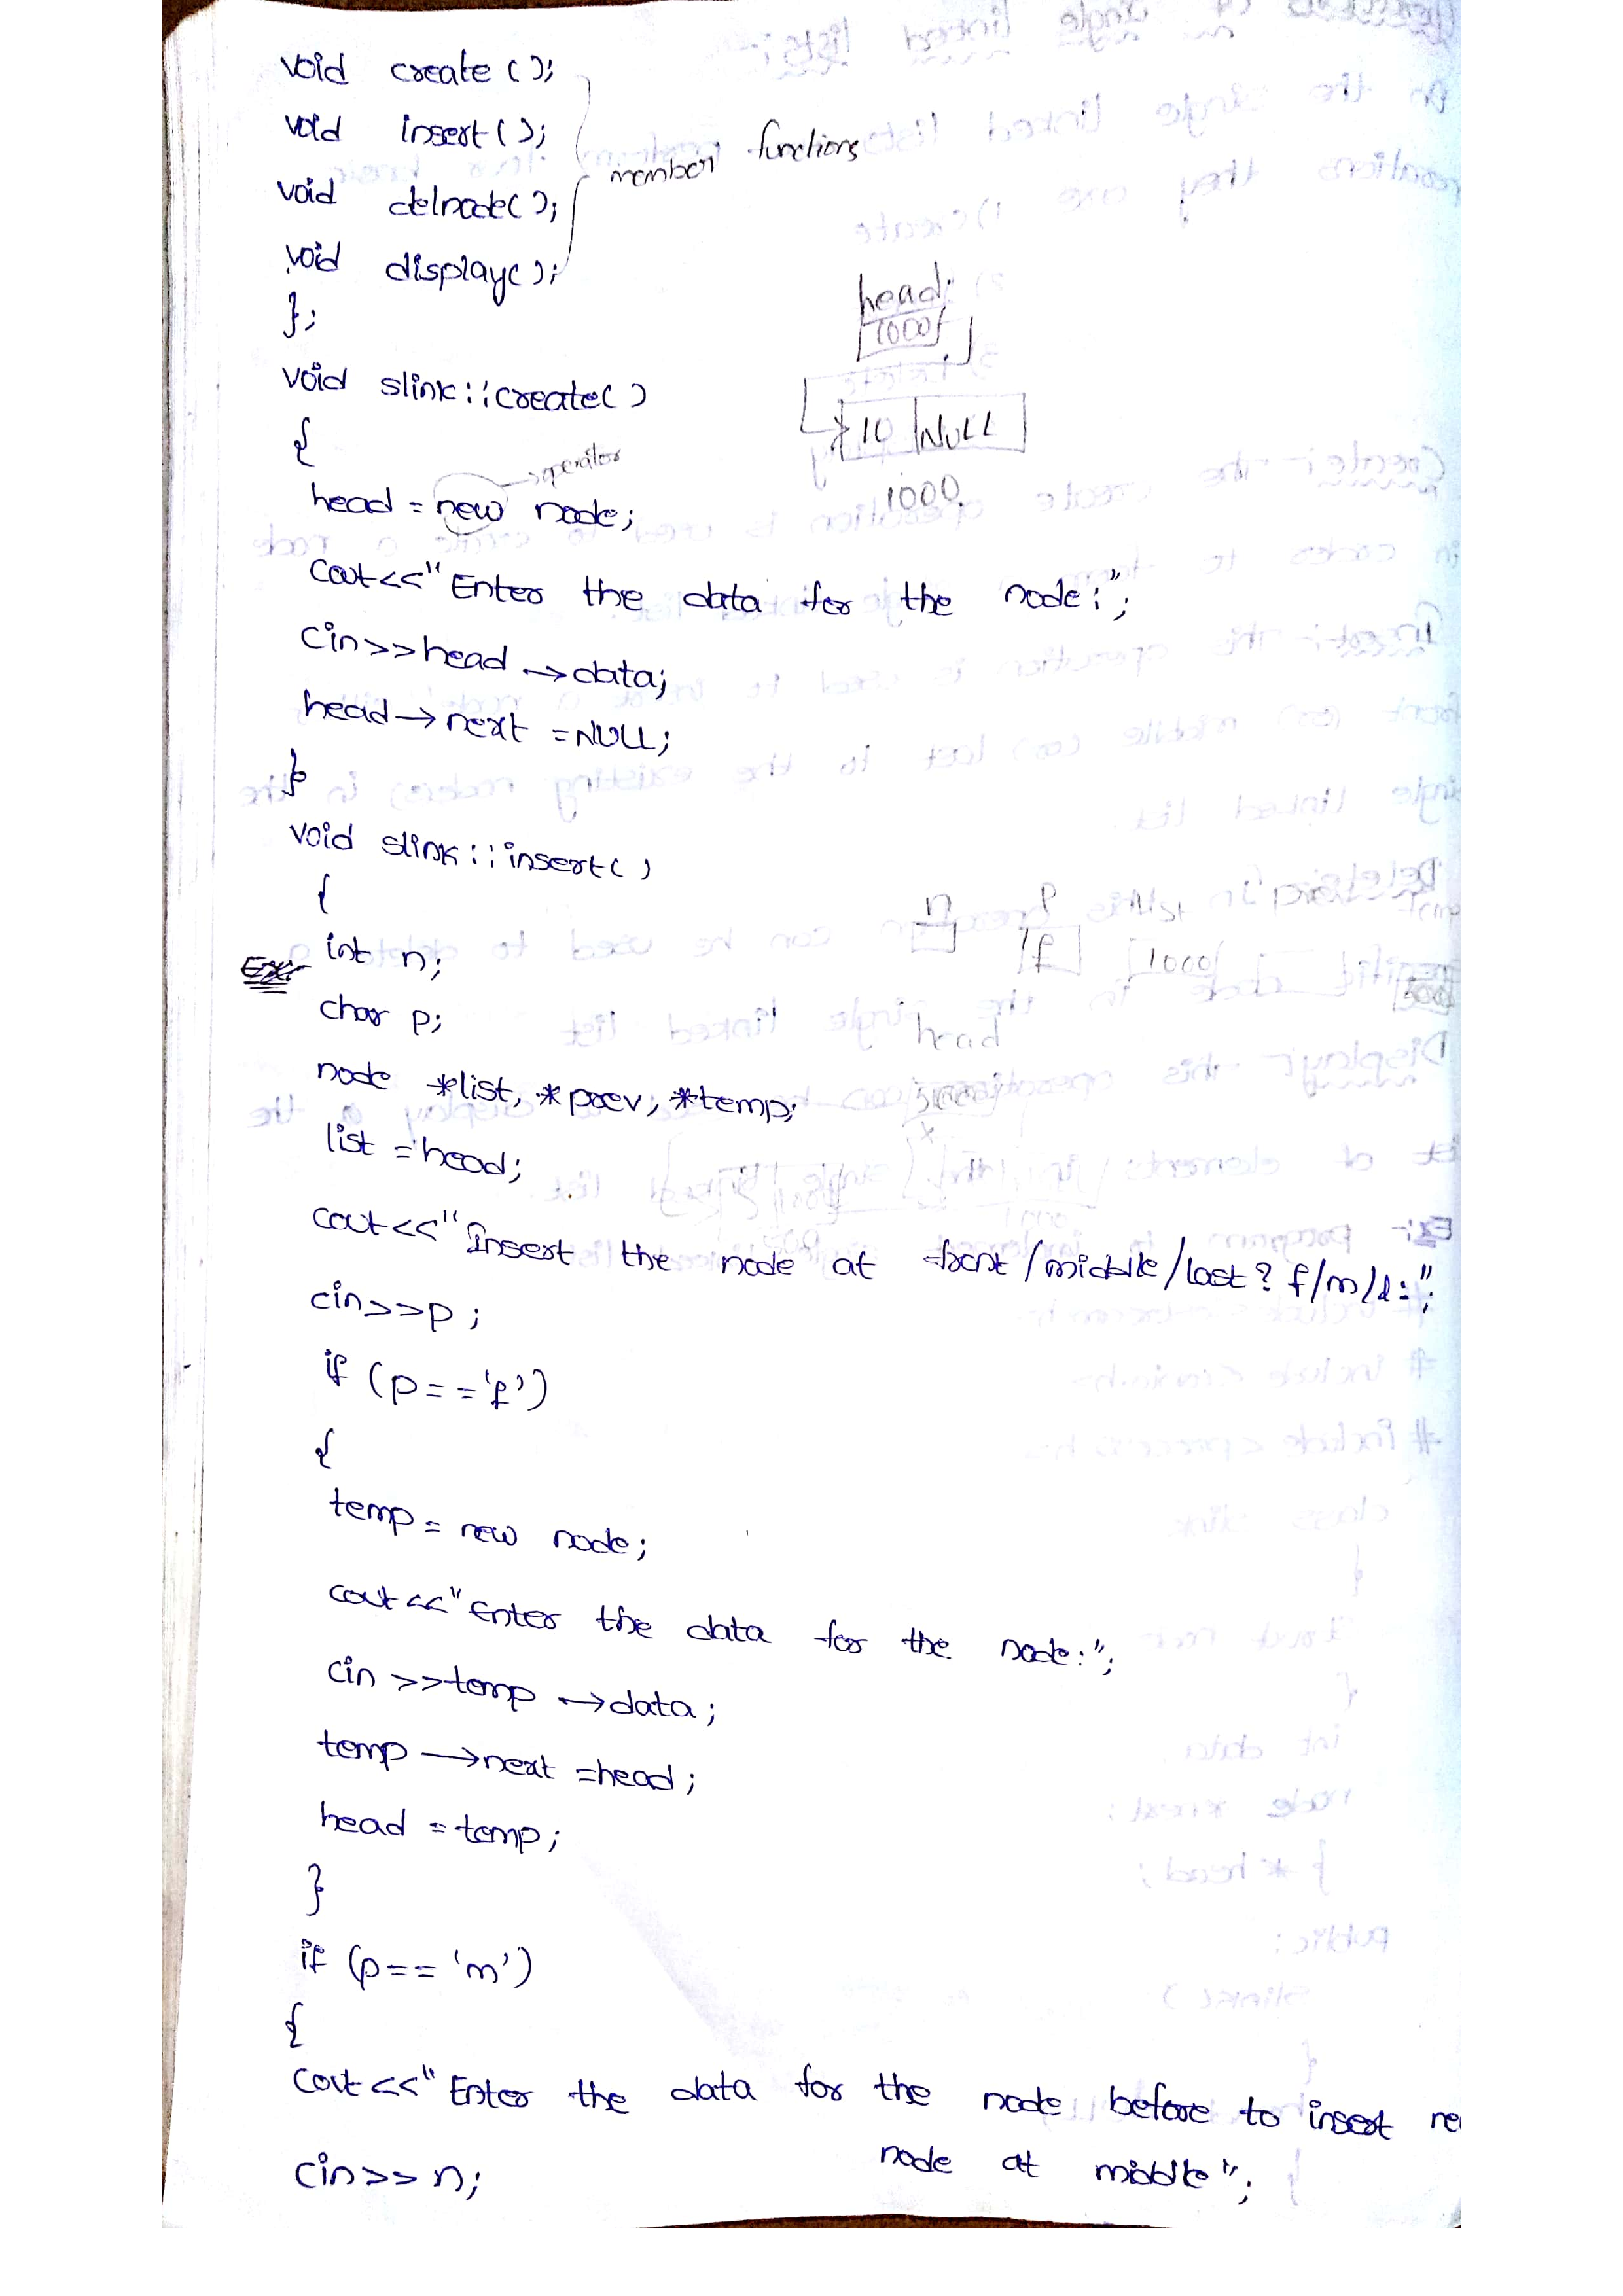 void create ( );
void insert ( );
void delnode( );
void display( );
member functions
};
head
1000
10 NULL
1000
void slink::create( )
{
operator
head = new node;
cout<<"Enter the data for the node:";
cin>>head →data;
head → next = NULL;
}
void slink::insert( )
{
n p list
f 1000
int n;
char p;
head
node *list, *prev, *temp;
list = head;
cout<<"Insert the node at front/middle/last? f/m/l:";
cin>>p;
if (p=='f')
{
temp = new node;
cout <<"Enter the data for the node:";
cin >>temp →data;
temp →next =head;
head = temp;
}
if (p== 'm')
{
cout <<"Enter the data for the node before to insert
node at middle";
cin>> n;